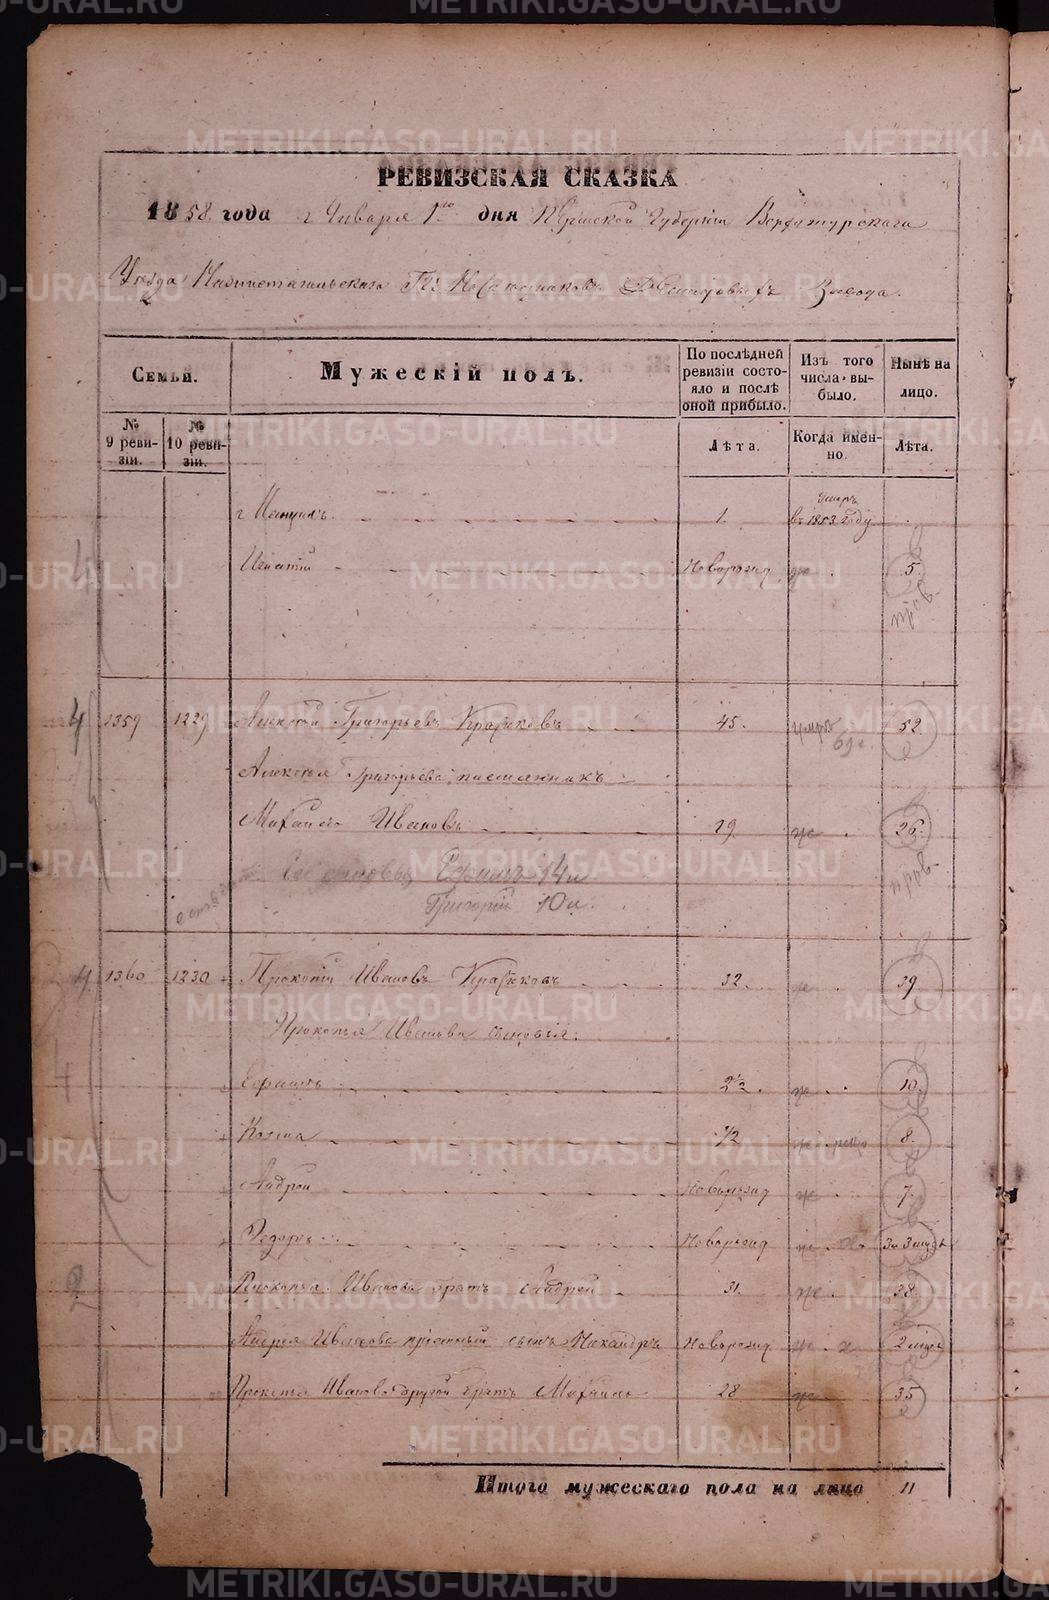 METRIKI.GASO-URAL.RU
РЕВИЗСКАЯ СКАЗКА
1858 года Января 1го дня Пермской Губернiи Верхотурскаго
Уезда Нижнетагильскаго Гг. Наследниковъ Демидовыхъ Завода.
Семьи.
Мужескiй полъ.
По послѣдней ревизiи состояло и послѣ оной прибыло.
Изъ того числа выбыло.
Нынѣ на лицо.
№ 9 ревизiи.
№ 10 ревизiи.
Лѣта.
Когда именно.
Лѣта.
1. умеръ въ 1853 году
Игнатiй Новорожд 5.
4 1359 1229 Григорьевъ 45. 52
Григорьева племянникъ
Михайло Ивановъ 19. 26.
сыновья Ефимъ 14 л
Григорiй 10 л.
4 1360 1230 Прокопiй Ивановъ 32. 39
Прокопья Иванова сыновья:
Ефимъ 2 1/2. 10.
Козма 1/2 8.
Андрей Новорожд 7.
Федоръ Новорожд 3 мцъ
2 Прокопья Иванова братъ Андрей 31. 38
Андрея Иванова прiемный сынъ Никандръ Новорожд 2 мцъ
Прокопья Иванова другой братъ Михайло 28 35
Итого мужескаго пола на лицо 11